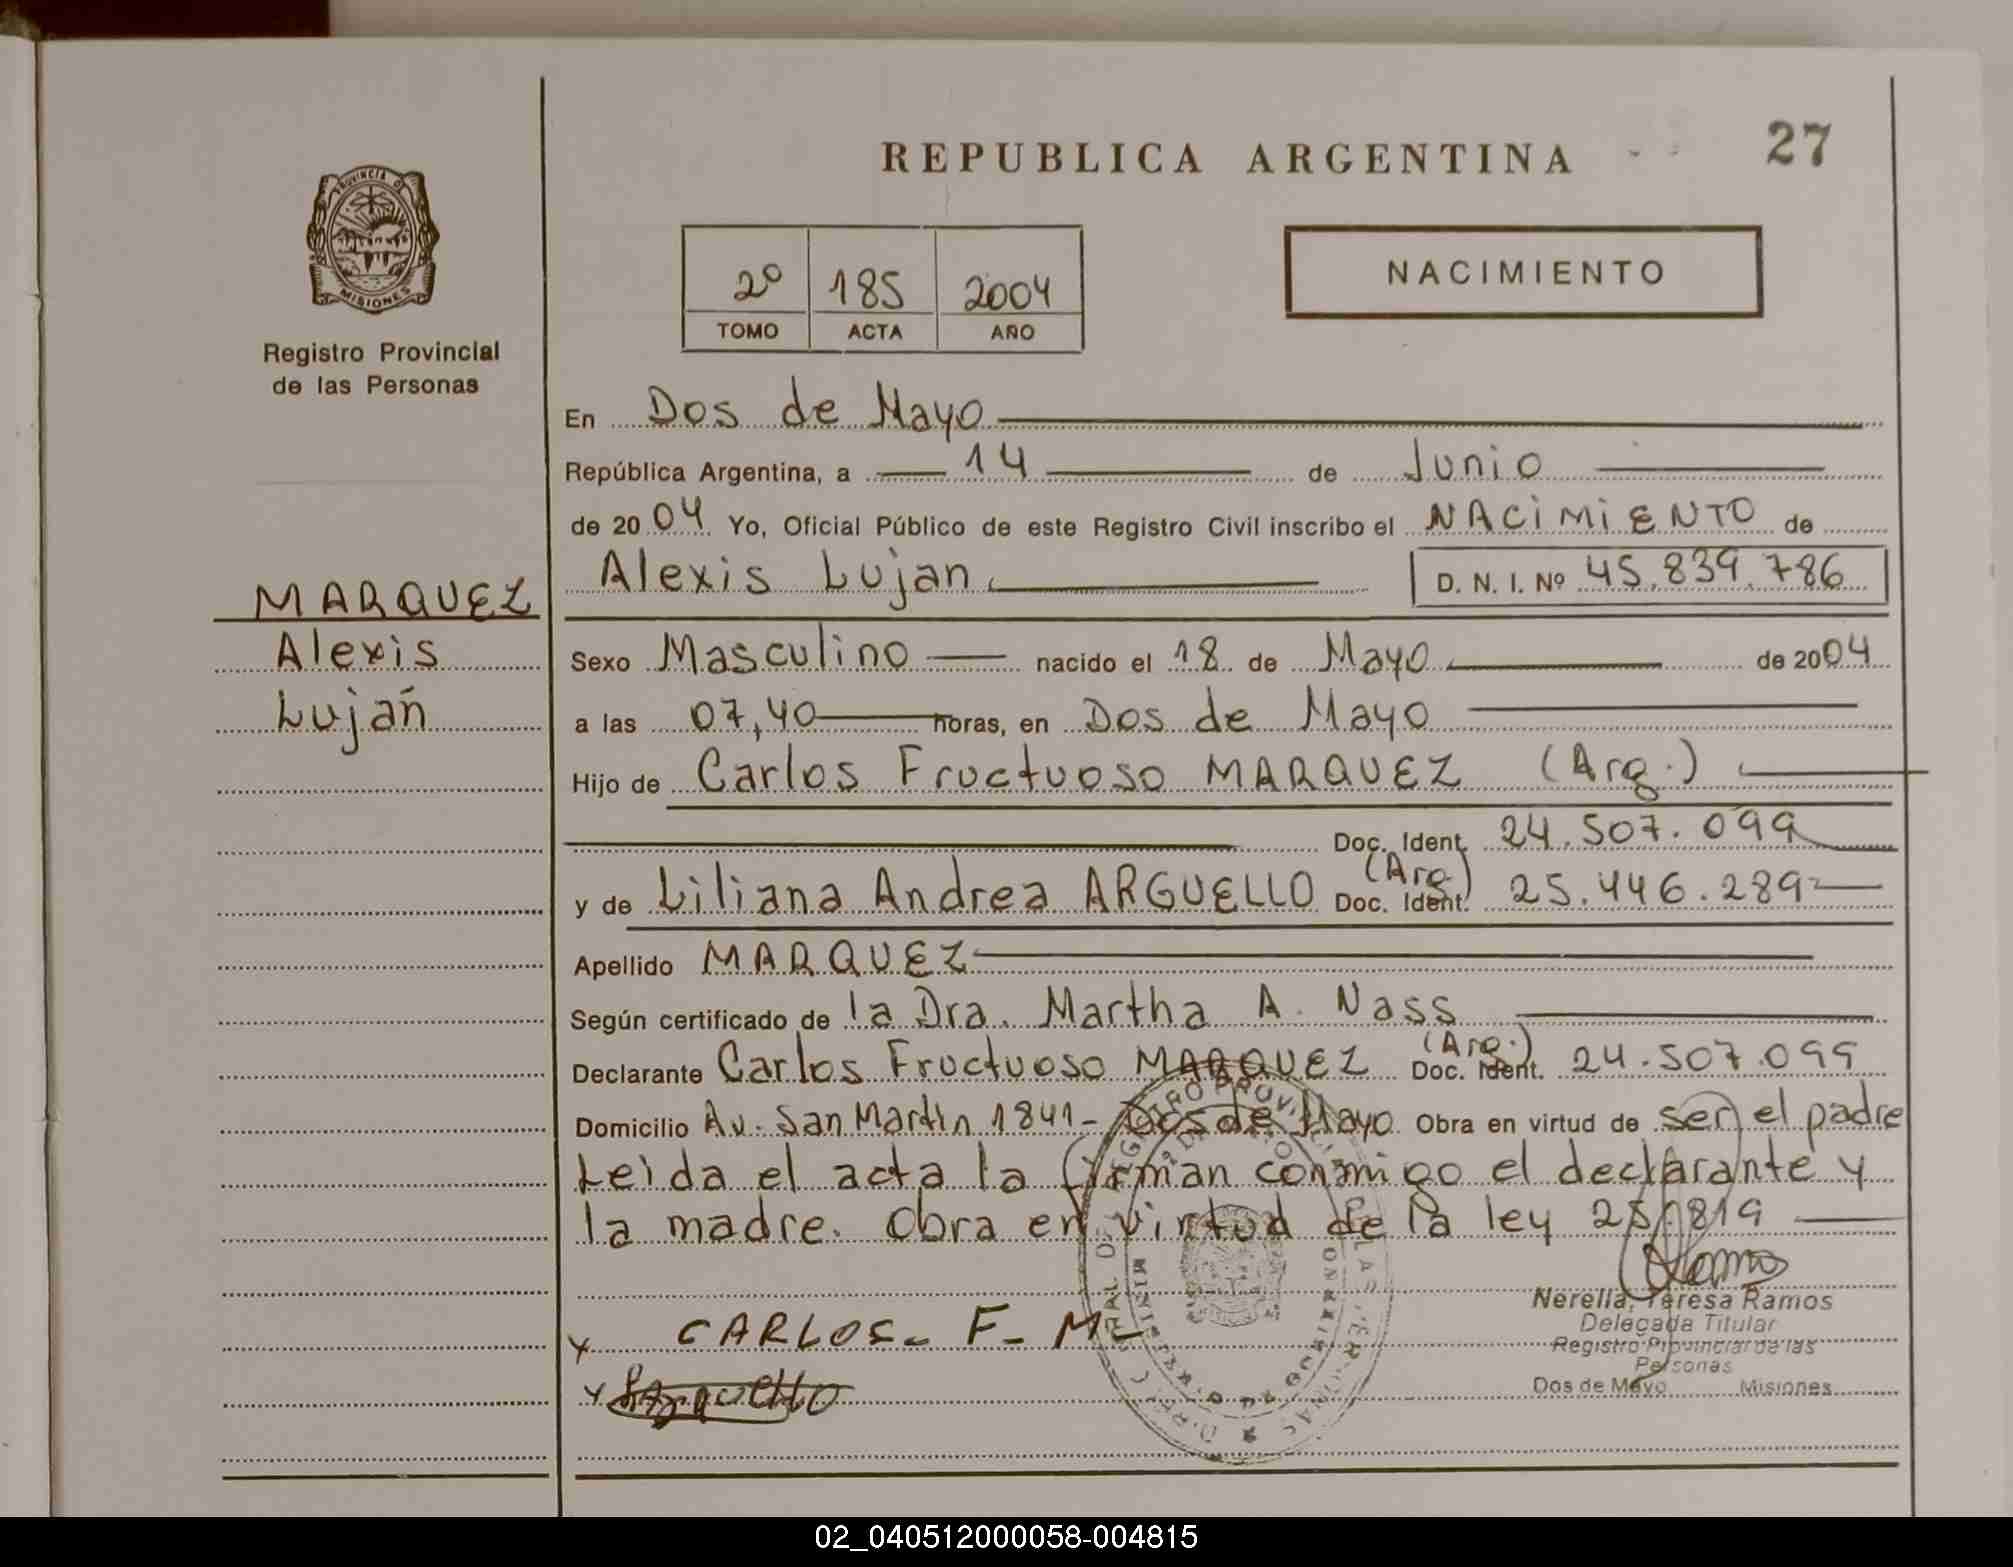 REPUBLICA ARGENTINA
27
PROVINCIA DE
MISIONES
Registro Provincial
de las Personas
2º 185 2004
TOMO ACTA AÑO
NACIMIENTO
En Dos de Mayo
República Argentina, a 14 de Junio
de 2004 Yo, Oficial Público de este Registro Civil inscribo el NACIMIENTO de
Alexis Lujan D. N. I. Nº 45.839.786
MARQUEZ
Alexis
Luján
Sexo Masculino nacido el 18 de Mayo de 2004
a las 07,40 horas, en Dos de Mayo
Hijo de Carlos Fructuoso MARQUEZ (Arg.)
Doc. Ident. 24.507.099
y de Liliana Andrea ARGUELLO (Arg.) Doc. Ident. 25.446.289
Apellido MARQUEZ
Según certificado de la Dra. Martha A. Nass
Declarante Carlos Fructuoso MARQUEZ (Arg.) Doc. Ident. 24.507.099
Domicilio Av. San Martín 1841- Dos de Mayo Obra en virtud de ser el padre
Leida el acta la firman conmigo el declarante y
la madre. Obra en virtud de la ley 25.819
Nerella, Teresa Ramos
Delegada Titular
Registro Provincial de las
Personas
Dos de Mayo Misiones
x CARLOS- F- M
x Arguello
02_040512000058-004815